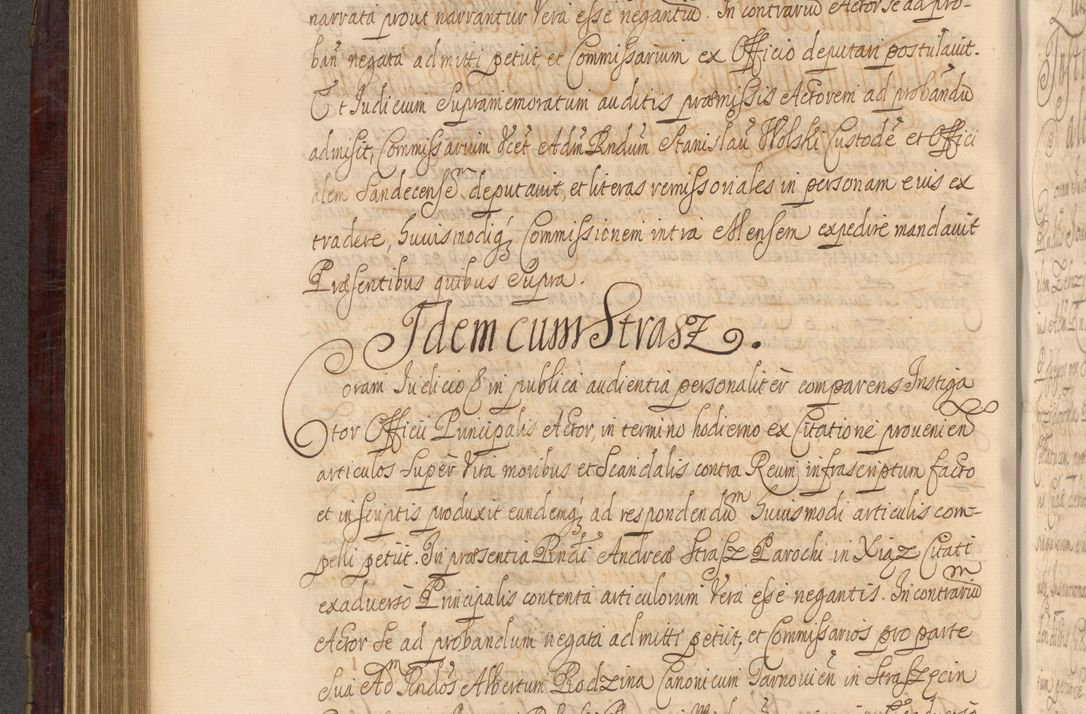 narrata prout narrantur vera esse negantiũ. In contrariũ Actor se ad pro-
bañ negata admitti petiit, et Commissarium ex Officio deputari postulauit.
Et Iudicum supramemoratum auditis præmissis Actorem ad probandũ
admisit, Commissarium vĉet Adm Rndũm Stanislaũ Wolski Custodẽ et Offici
alem Sandecensem deputauit, et literas remissoriales in personam euis ex
tradere, huiusmodiq; Commissionem intra Mensem expedire mandauit
Præsentibus quibus supra.
Idem cum Strasz.
Coram Iudicio & in publica audientia personaliter comparens Instiga
tor Officii Principalis Actor, in termino hodierno ex Citatione prouenien
articulos super vita moribus et scandalis contra Reum infrascriptum facto
et in scriptis produxit eundemq; ad respondendũ huiusmodi articulis com-
pelli petiit. In præsentia Rndi Andreæ Strasz Parochi in Xiąz Citati
ex aduerso Principalis contenta articulorum vera esse negantis. In contrariũ
Actor se ad probandum negata admitti petiit, et Commissarios pro parte
sua Adm Rndos Albertum Rodzina Canonicum Tarnouień in Straszęcin